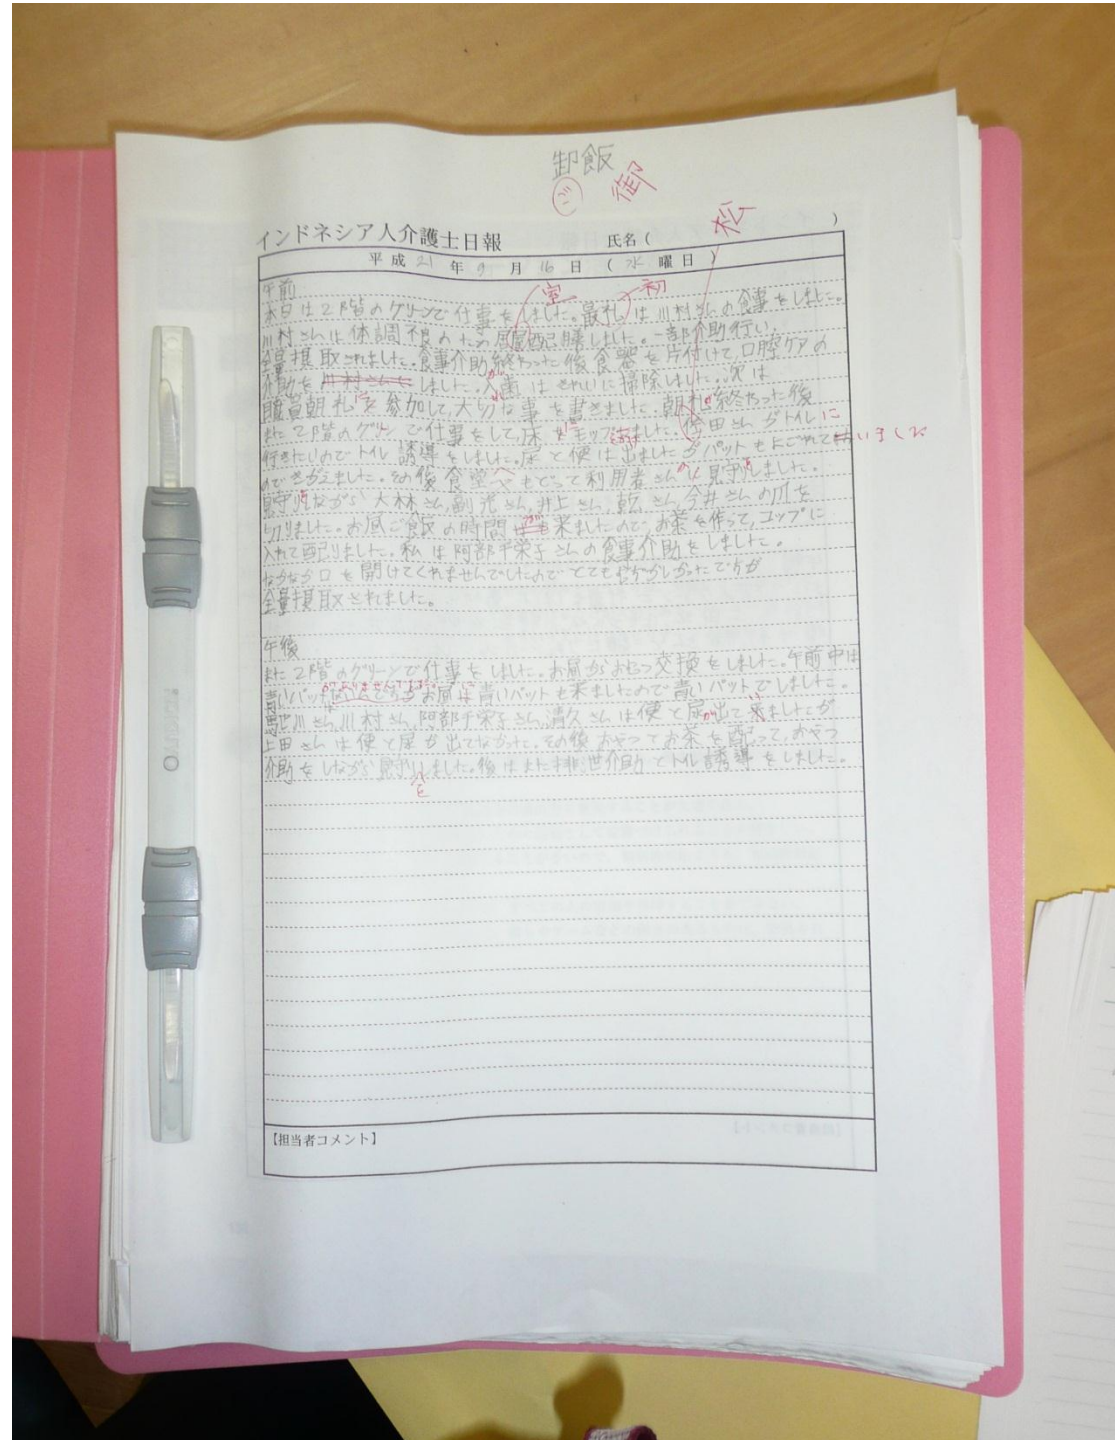 卸飯
ご 御
松
インドネシア人介護士日報 氏名( )
平成21年9月16日(水曜日)
室 初
午前
本日は2階のグリーンで仕事をしました。最礼は川村さんの食事をしました。
川村さんは体調不良のため居配膳しました。一部介助行い、
全量摂取されました。食事介助終わった後食器を片付けて、口腔ケアの
介助を しました。入歯はきれいに掃除しました。次は
職員朝礼を参加して、大切な事を書きました。朝礼終わった後
また2階のグリーンで仕事をして、床 モップ ました。 田さんがトイレに
行きたいのでトイレ誘導をしました。尿と便は出ました パットもよごれて いました
のできがえました。その後食堂へもどって利用者さん 見守りしました。
見守りながら 大林さん, 副光さん, 井上さん, 乾さん, 今井さんの爪を
切りました。お昼ご飯の時間 来ましたので、お茶を作って、コップに
入れて配りました。私は阿部千栄子さんの食事介助をしました。
なかなか口を開けてくれませんでしたので とても ですが
全量摂取されました。
午後
また2階のグリーンで仕事をしました。お昼からおむつ交換をしました。午前中は
青いパット がありませんでしたが お昼は青いパットも来ましたので青いパットでしました。
川さん, 川村さん, 阿部千栄子さん, 清久さんは便と尿が出て来ましたが
上田さんは便と尿が出てなかった。その後おやつとお茶を配って、おやつ
介助をしながら見守りました。後はまた排泄介助とトイレ誘導をしました。
を
【担当者コメント】